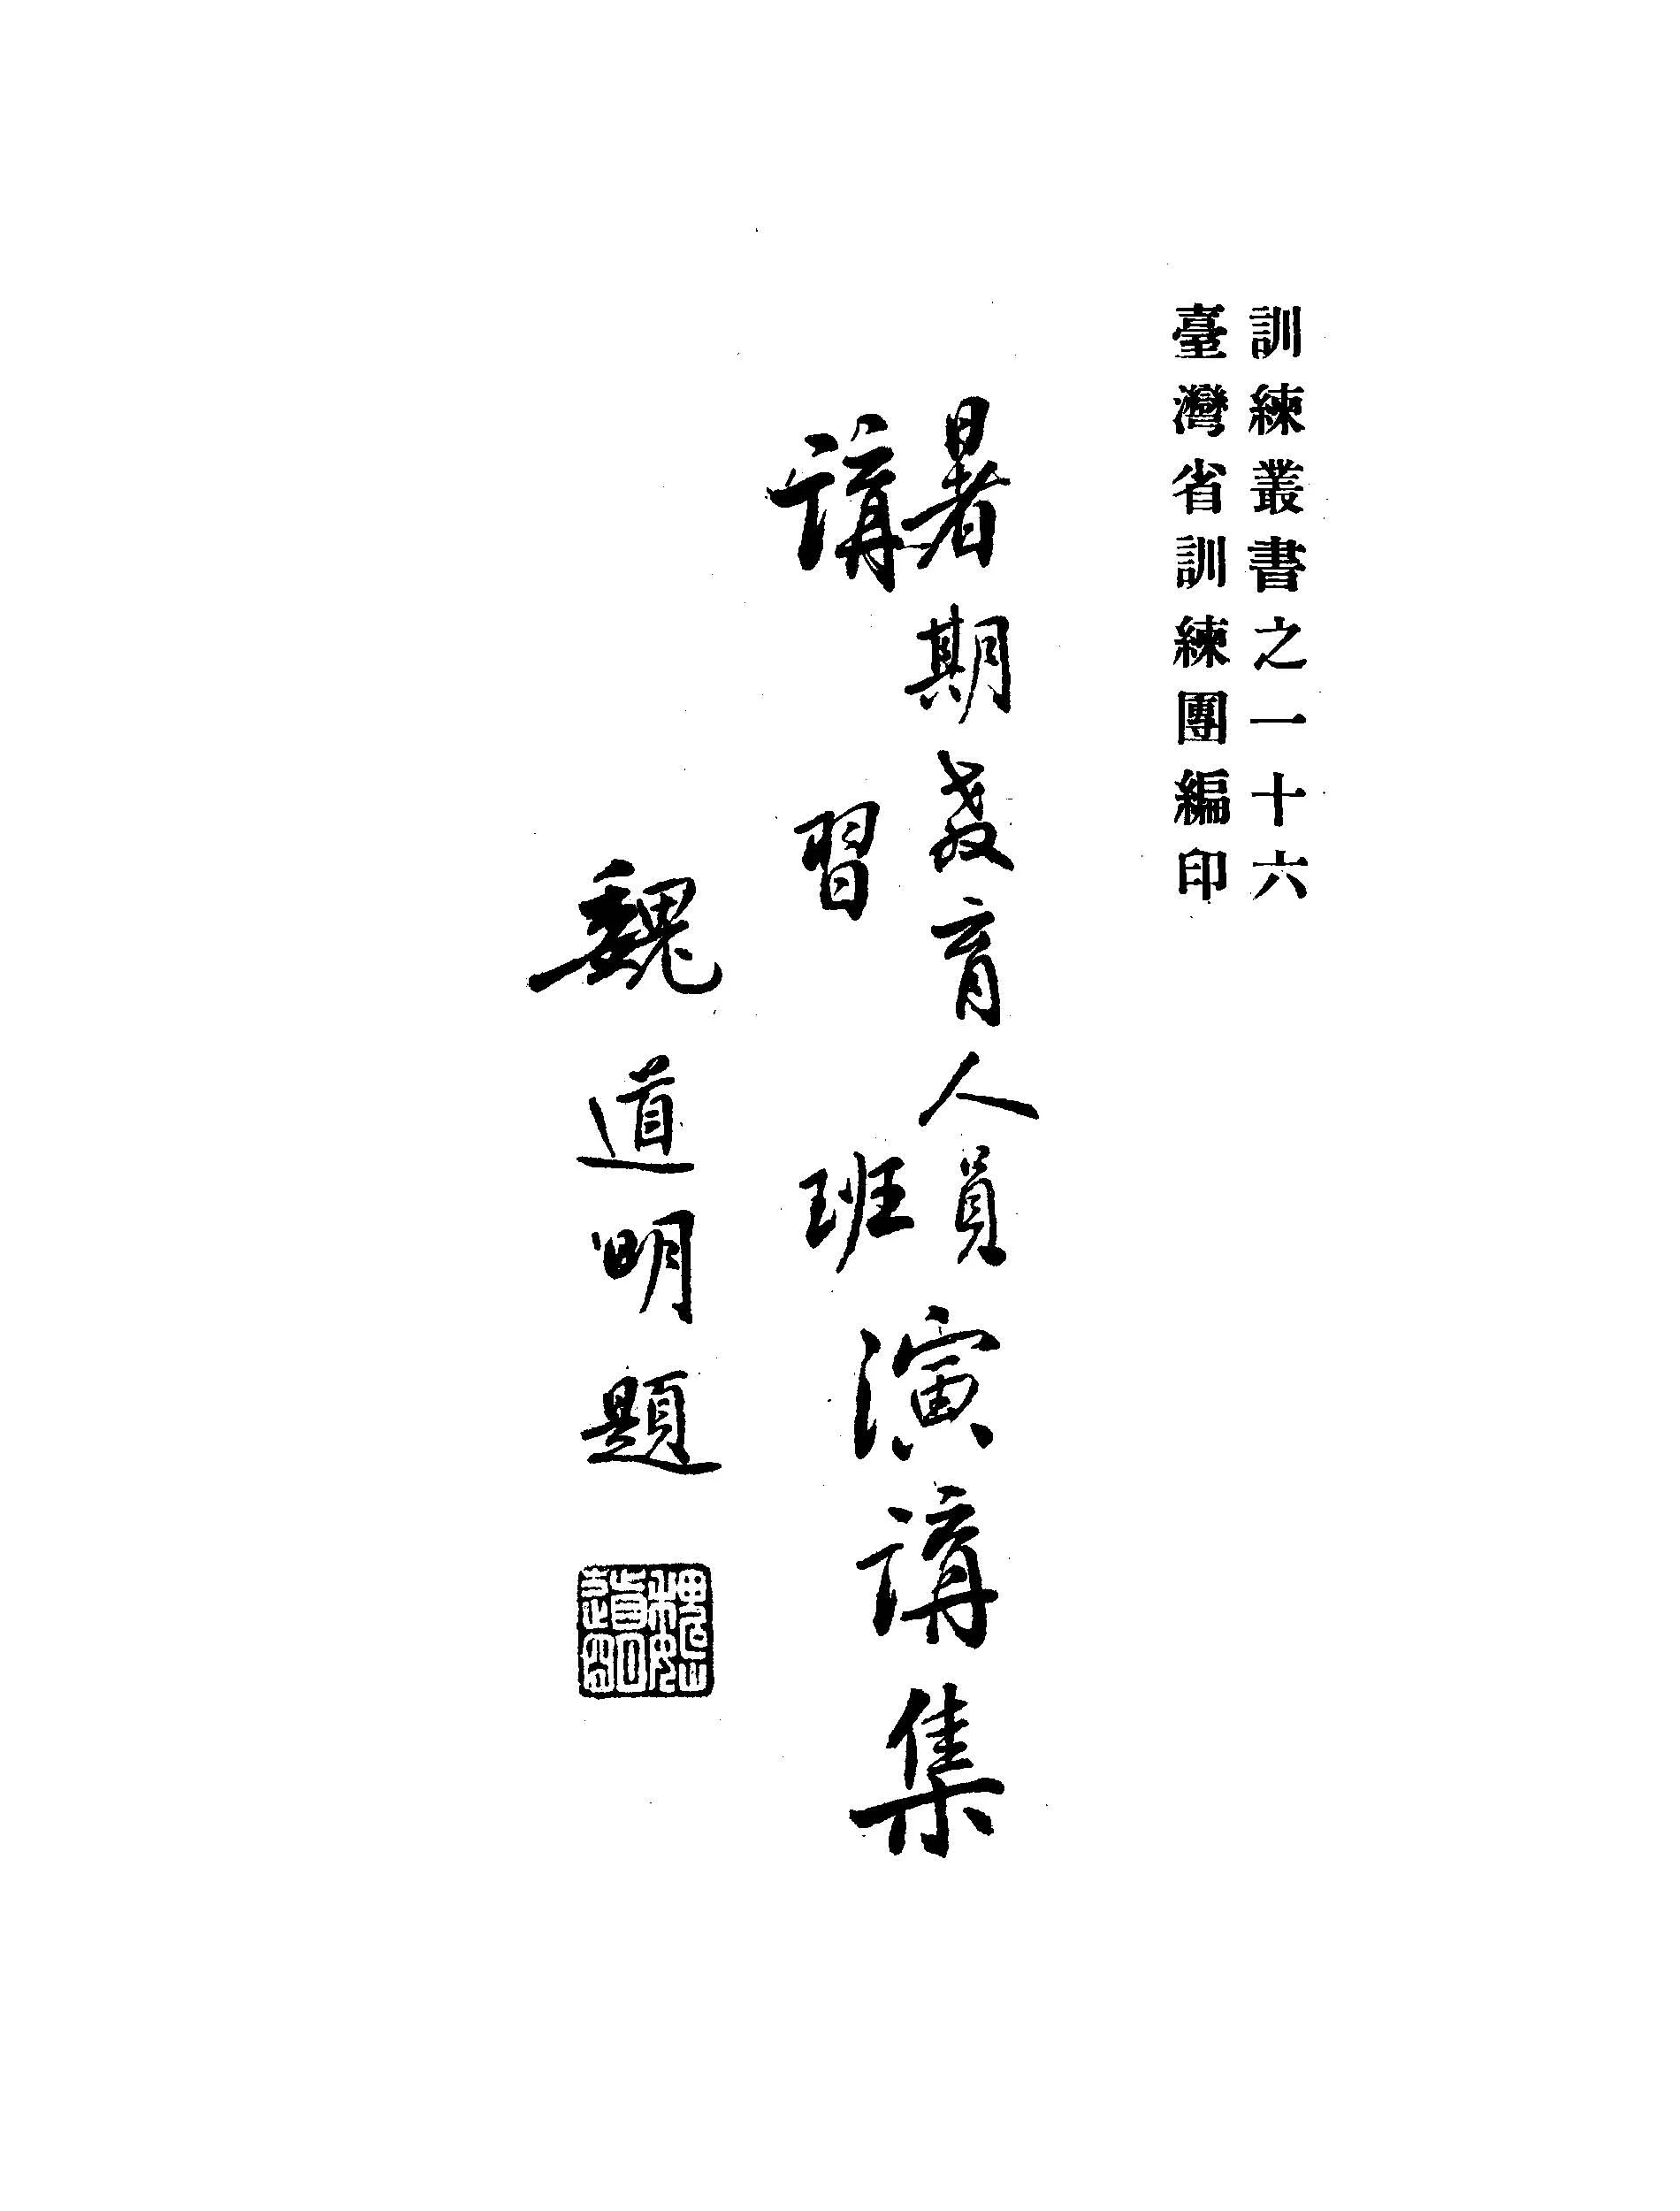 訓練叢書之一十六
臺灣省訓練團編印
暑期教育人員
講習班
演講集
魏道明題